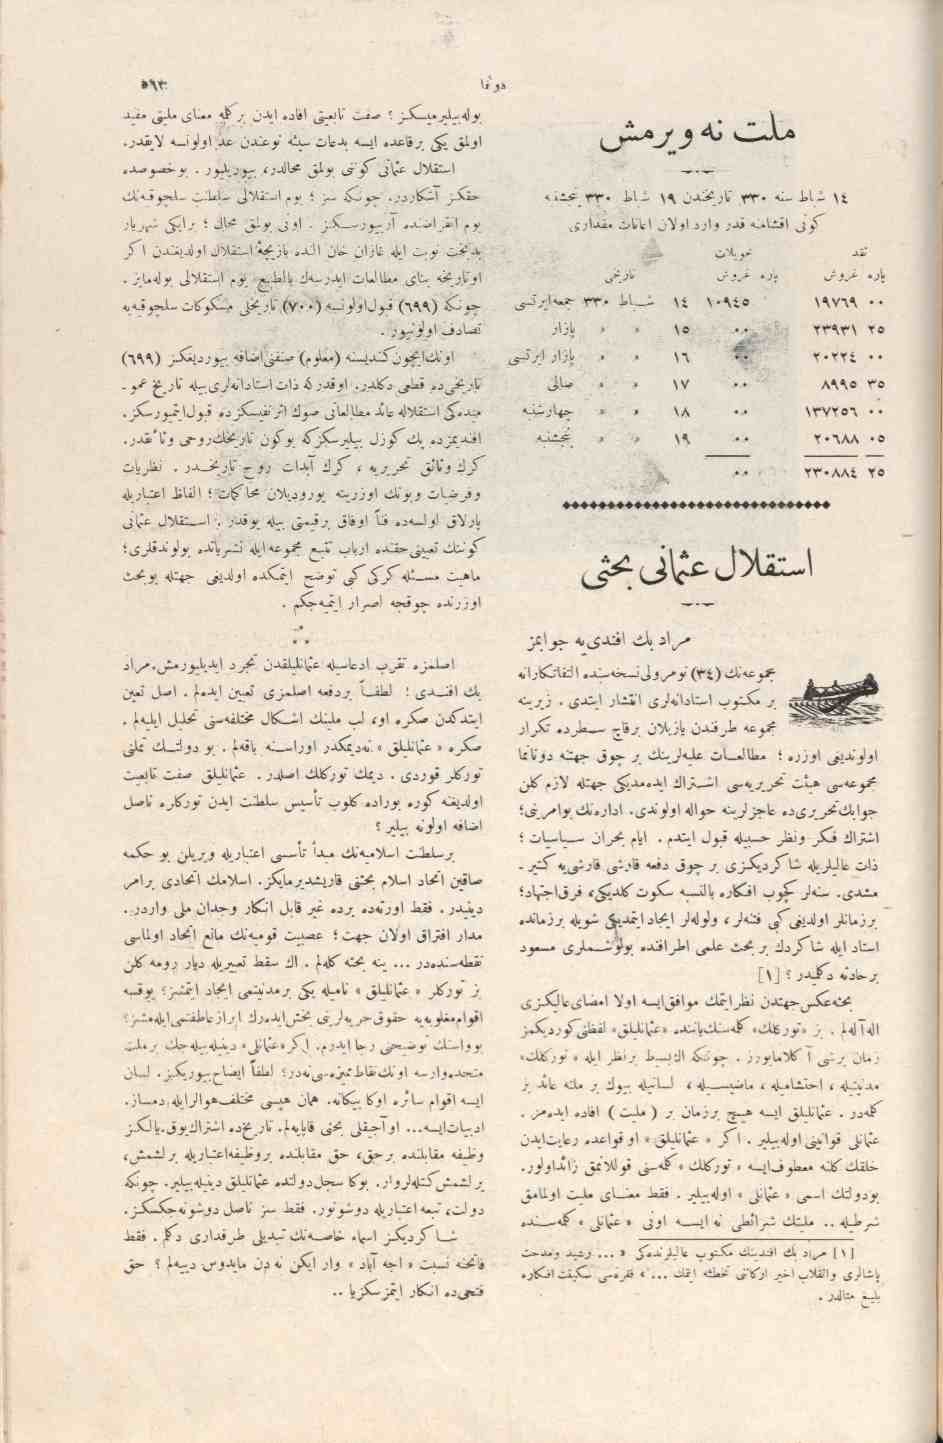 دوننما
٥٦٣
ملت نه ویرمش
١٤ شباط سنه ٣٣٠ تاریخندن ١٩ شباط ٣٣٠ پنجشنبه
كونی اقشامنه قدر وارد اولان اعانات مقداری
نقد حوالات
پاره غروش پاره غروش تاریخی
٠٠ ١٩٧٦٩ ١٠٩٤٥ ١٤ شباط ٣٣٠ جمعه ایرتسی
٢٥ ٢٣٩٣١ ٠٠ ١٥ » » بازار
٠٠ ٢٠٢٢٤ ٠٠ ١٦ » » بازار ایرتسی
٣٥ ٨٩٩٥ ٠٠ ١٧ » » صالی
٠٠ ١٣٧٢٥٦ ٠٠ ١٨ » » چهارشنبه
٠٥ ٢٠٦٨٨ ٠٠ ١٩ » » پنجشنبه
٢٥ ٢٣٠٨٨٤ ٠٠
استقلال عثمانی بحثی
مراد بك افندی‌یه جوابمز
مجموعه‌نك (٣٤) نومرولی نسخه‌سنده التفاتكارانه
بر مكتوب استادانه‌لری انتشار ایتدی . زیرینه
مجموعه طرفندن یازیلان برقاچ سطرده تكرار
اولوندیغی اوزره ؛ مطالعات علیه‌لرینك بر چوق جهتنه دوننما
مجموعه‌سی هیئت تحریریه‌سی اشتراك ایده‌مدیكی جهتله لازم كلن
جوابك تحریری ده عاجزلرینه حواله اولوندی. اداره‌نك بوامرینی؛
اشتراك فكر ونظر حسبیله قبول ایتدم . ایام بحران سیاسیات ؛
ذات عالیلریله شاكردیكزی بر چوق دفعه قارشی قارشی‌یه كتیر -
مشدی. سنه‌لر كچوب افكاره بالنسبه سكوت كلدیكی، فرق اجتهاد؛
برزمانلر اولدیغی كبی فتنه‌لر، ولوله‌لر ایجاد ایتمدیكی شویله برزمانده
استاد ایله شاكردك بر بحث علمی اطرافنده بولوشملری مسعود
بر حادثه دكلمیدر ؟ [١]
بحثه عكس جهتدن نظر ایتمك موافق ایسه اولا امضای عالیكزی
اله آله‌لم . بز «توركلك» كلمه‌سنك یاننده «عثمانلیلق» لفظنی كوردیكمز
زمان برشی آ كلامایورز . چونكه اك بسیط برنظر ایله « توركلك»
مدنیتیله ، احتشامیله ، ماضیسیله ، لسانیله بیوك بر ملته عائد بر
كلمه‌در . عثمانلیلق ایسه هیچ برزمان بر ( ملیت ) افاده ایده‌مز .
عثمانلی قوانینی اوله‌بیلیر . اكر « عثمانلیلق » او قواعده رعایت ایدن
خلقك كلنه معطوف ایسه « توركلك » كلمه‌سنی قوللانمق زائد اولور.
بودولتك اسمی « عثمانلی » اوله‌بیلیر . فقط معنای ملیت اولمامق
شرطیله .. ملیتك شرائطی نه ایسه اونی « عثمانلی » كلمه‌سنده
[١] مراد بك افندینك مكتوب عالیلرنده‌كی « ... رشید ومدحت
پاشالری وانقلاب اخیر اركاننی تخطئه ایتمك ... » فقره‌سی سكینت افكاره
بلیغ مثالدر .
بوله‌بیلیرمیسكز ؟ صفت تابعیتی افاده ایدن بركلمه معنای ملیتی مفید
اولمق یكی برقاعده ایسه بدعات سیئه نوعندن عد اولونسه لایقدر.
استقلال عثمانی كوننی بولمق محالدر، بیوریلیور . بوخصوصده
حقكز آشكاردر. چونكه سز ؛ یوم استقلالی سلطنت سلچوقیه‌نك
یوم انقراضنده آریورسكز . اونی بولمق محال ؛ برایكی شهریار
بدبخت نوبت ایله غازان خان النده بازیچهٔ استقلال اولدیغندن اكر
اوتاریخه بنای مطالعات ایدرسه‌ك بالطبع یوم استقلالی بوله‌مایز .
چونكه (٦٩٩) قبول اولونسه (٧٠٠) تاریخلی مسكوكات سلچوقیه‌یه
تصادف اولونیور .
اونك ایچون كندیسنه (معلوم) صفتنی اضافه بیوردیغكز (٦٩٩)
تاریخی ده قطعی دكلدر. اوقدركه ذات استادانه‌لری بیله تاریخ عمو -
میده‌كی استقلاله عائد مطالعاتی صوك اثر نفیسكزده قبول ایتمیورسكز.
افندیمزده پك كوزل بیلیرسكزكه بوكون تاریخك روحی وثائقدر.
كرك وثائق تحریریه ، كرك آبدات روح تاریخدر . نظریات
وفرضیات وبونك اوزرینه یورودیلان محاكمات ؛ الفاظ اعتباریله
پارلاق اولسه‌ده فناً اوفاق برقیمتی بیله یوقدر . استقلال عثمانی
كوننك تعیینی حقنده ارباب تتبع مجموعه ایله نشریاتده بولوندقلری؛
ماهیت مسئله كركی كبی توضح ایتمكده اولدیغی جهتله بوبحث
اوزرنده چوقجه اصرار ایتمیه‌جكم .
***
اصلمزه تقرب ادعاسیله عثمانلیلقدن تجرد ایدیلیورمش. مراد
بك افندی ؛ لطفاً بردفعه اصلمزی تعیین ایده‌لم . اصل تعین
ایتدكدن صكره او، لب ملیتك اشكال مختلفه‌سنی تحلیل ایلیه‌لم .
صكره « عثمانلیلق » نه‌دیمكدر اوراسنه باقه‌لم . بو دولتك تملنی
توركلر قوردی . دیمك توركلك اصلدر . عثمانلیلق صفت تابعیت
اولدیغنه كوره بوراده كلوب تأسیس سلطنت ایدن توركلره ناصل
اضافه اولونه بیلیر ؟
برسلطنت اسلامیه‌نك مبدأ تأسسی اعتباریله ویریلن بو حكمه
صاقین اتحاد اسلام بحثنی قاریشدیرمایكز. اسلامك اتحادی برامر
دینیدر . فقط اورته‌ده برده غیر قابل انكار وجدان ملی واردر.
مدار افتراق اولان جهت ؛ عصبیت قومیه‌نك مانع اتحاد اولماسی
نقطه‌سنده‌در ... ینه بحثه كله‌لم . اك سقط تعبیریله دیار رومه كلن
بز توركلر « عثمانلیلق » نامیله یكی برمدنیتمی ایجاد ایتمشز؟ یوقسه
اقوام مغلوبه‌یه حقوق حریه‌لرینی بخش ایده‌رك ابراز عاطفتمی ایله‌مشز؟
بوراسنك توضیحنی رجا ایدرم. اكر «عثمانلی» دینیله‌بیله‌جك برملت
متحده وارسه اونك نقاط ممیزه‌سی نه‌در؛ لطفاً ایضاح بیوریكز. لسان
ایسه اقوام سائره اوكا بیكانه. همان هپسی مختلف هوالرایله‌ دمساز.
ادبیات ایسه... او آجیقلی بحثی قاپایه‌لم. تاریخ‌ده اشتراك یوق. یالكز
وظیفه مقابلنده برحق، حق مقابلنده بروظیفه اعتباریله برلشمش،
برلشمش كتله‌لروار. بوكا سجل دولتده عثمانلیلق دینیله‌بیلیر. چونكه
دولت، تبعه اعتباریله دوشونور. فقط سز ناصل دوشونه‌جكسكز.
شاكردیكز اسماء خاصه‌نك تبدیلی طرفداری دكلم . فقط
فاتحنه نسبت « اجه آباد » وار ایكن نه‌دن مایدوس دییه‌لم ؟ حق
فتحی‌ده انكار ایتمزسكزیا ..